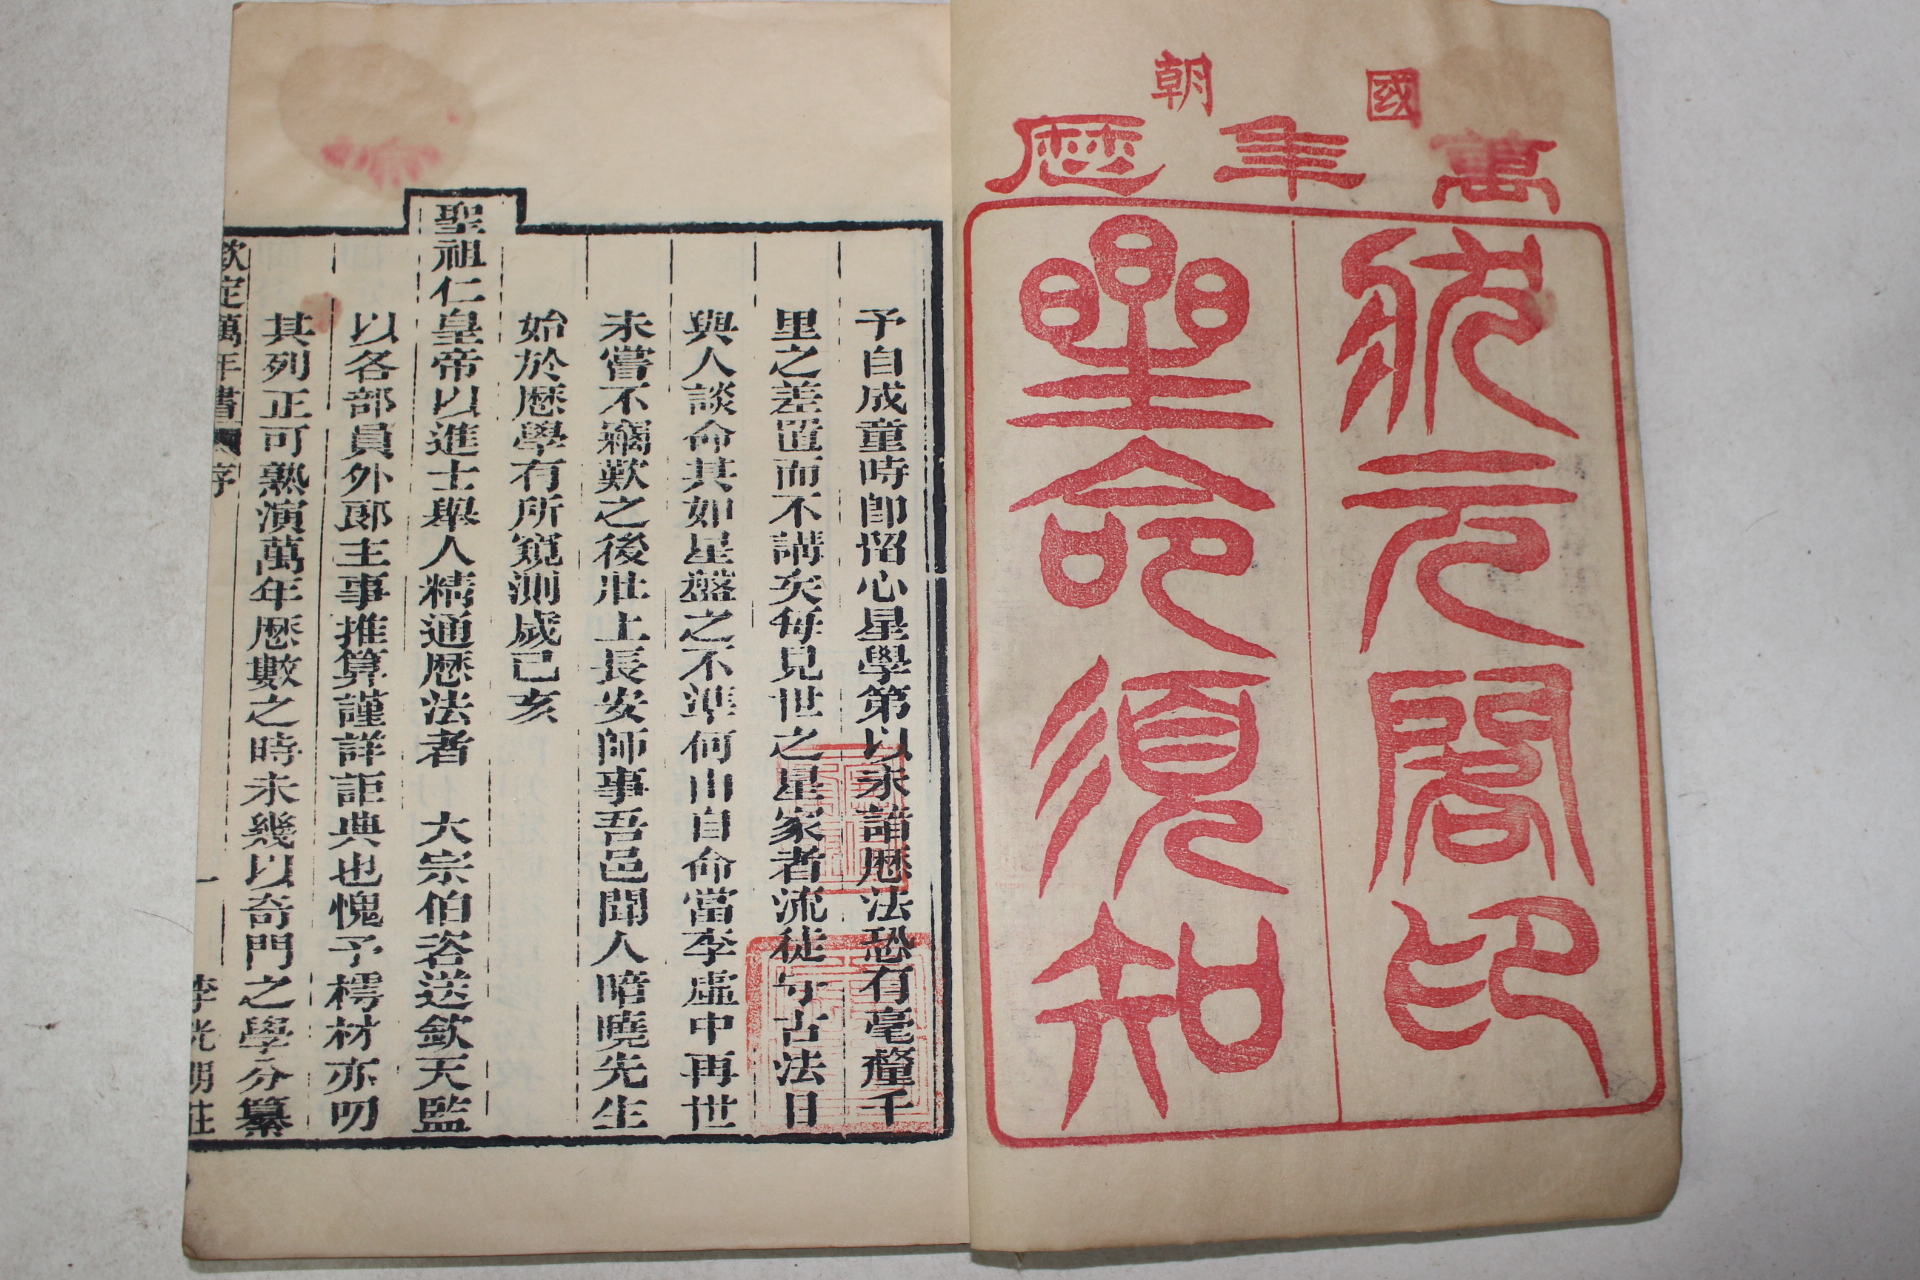 國朝
萬年曆
狀元閣印
星命須知
予自成童時卽留心星學第以未諳曆法恐有毫釐千
里之差置而不講矣每見世之星家者流徒守古法日
與人談命其如星盤之不準何由自命當李虛中再世
未嘗不竊歎之後壯上長安師事吾邑聞人暗曉先生
始於曆學有所窺測歲己亥
聖祖仁皇帝以進士舉人精通曆法者 大宗伯咨送欽天監
以各部員外郎主事推算謹詳詎典也愧予樗材亦叨
其列正可熟演萬年曆數之時未幾以奇門之學分纂
欽定萬年書 序 一 李光明莊